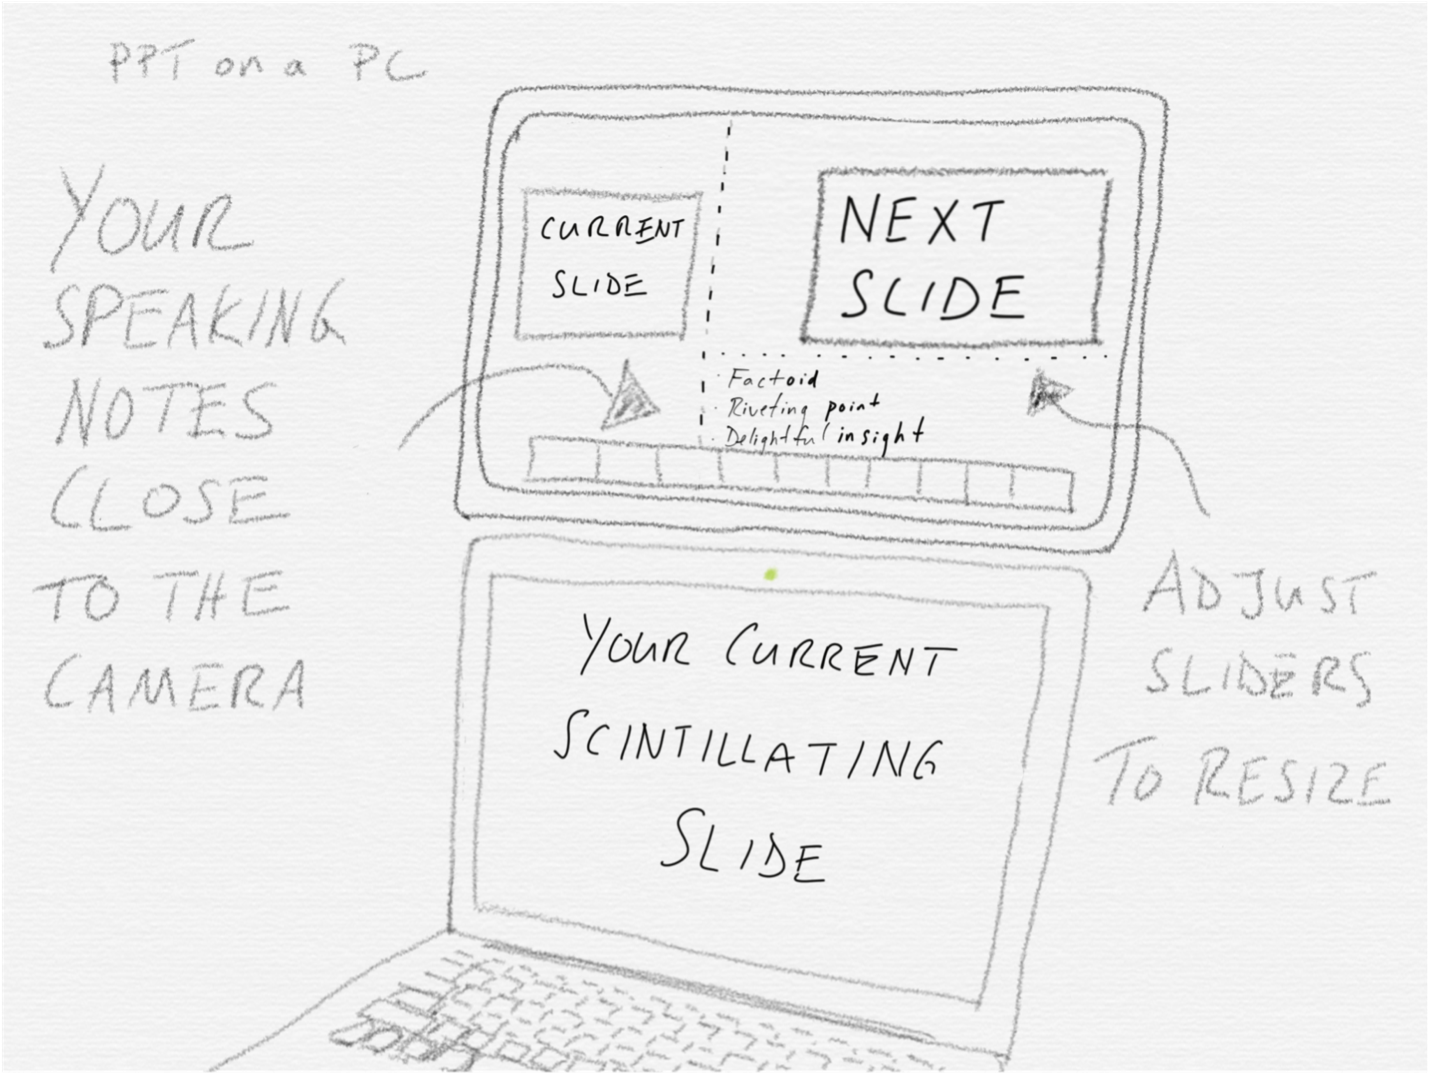 PPT on a PC
YOUR
SPEAKING
NOTES
CLOSE
TO THE
CAMERA
CURRENT
SLIDE
NEXT
SLIDE
· Factoid
· Riveting point
· Delightful insight
YOUR CURRENT
SCINTILLATING
SLIDE
ADJUST
SLIDERS
TO RESIZE